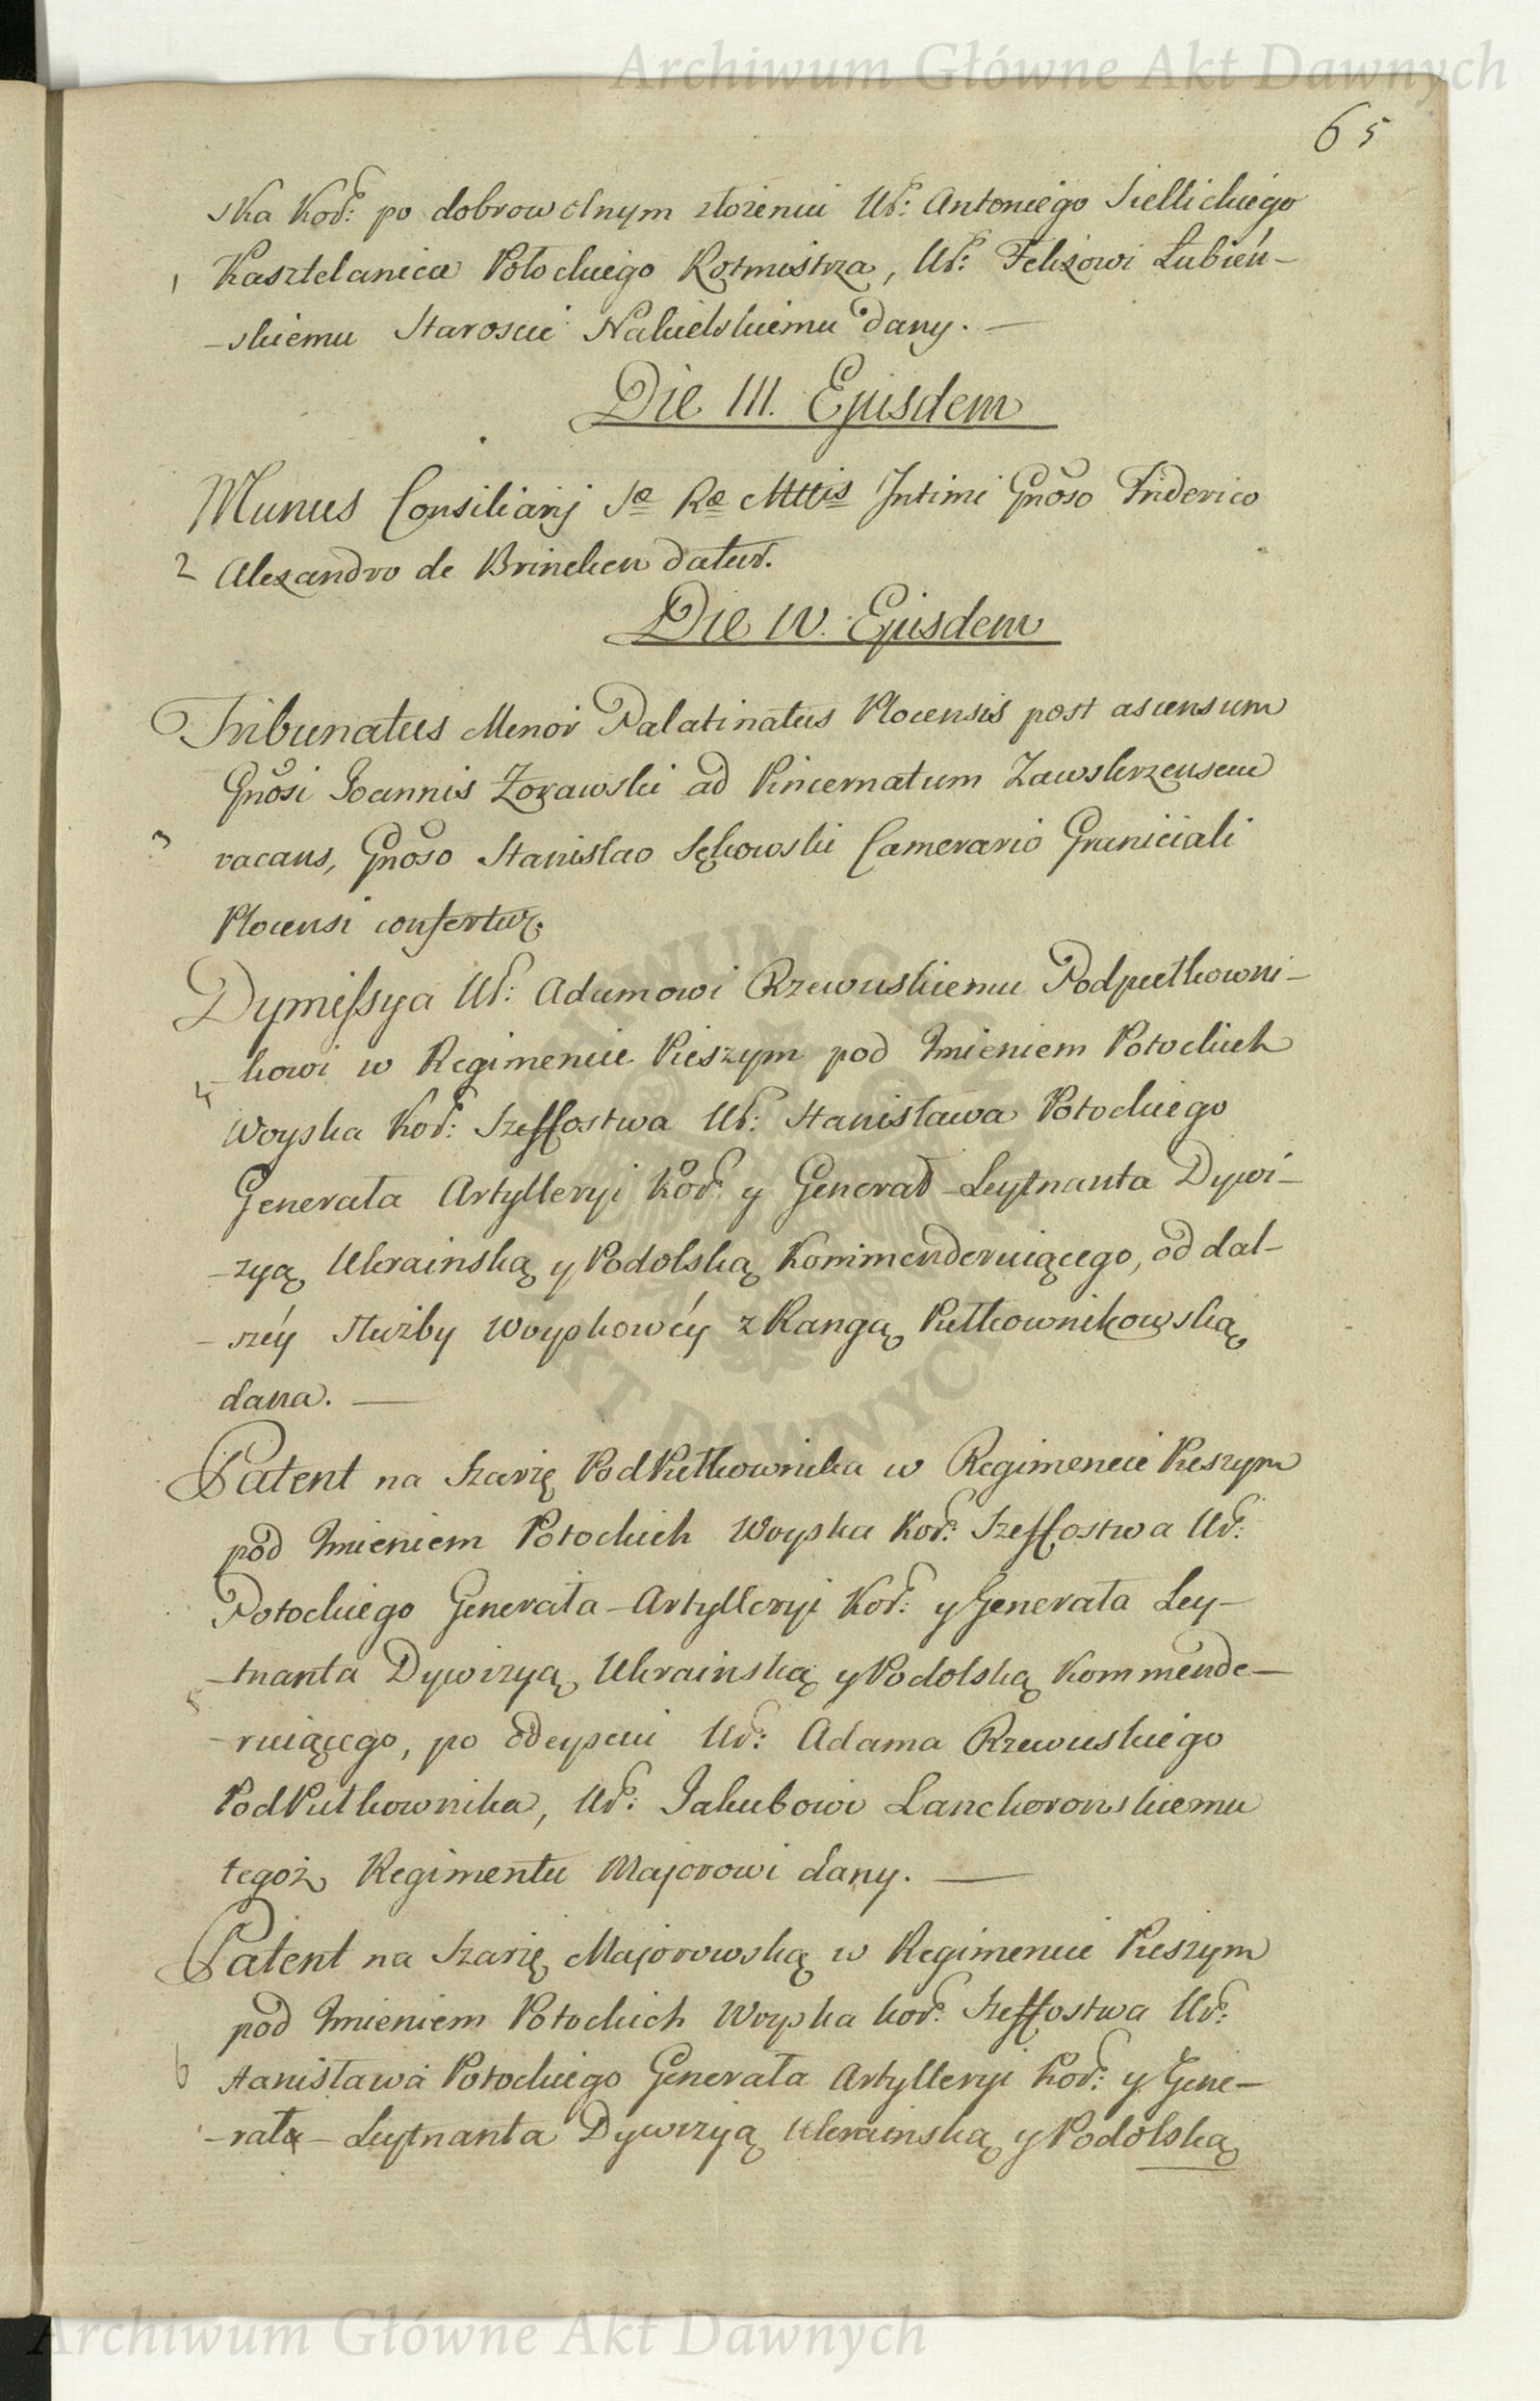 Archiwum Główne Akt Dawnych
65
ska Kor: po dobrowolnym złożeniu Ur: Antoniego Siellickiego
1 Kasztelanica Połockiego Rotmistrza, Ur: Felixowi Łubień-
-skiemu Staroscie Nakielskiemu dany. —
Die III. Ejusdem
Munus Consiliarij Sæ Ræ Mttis Intimi Gnoso Friderico
2 Alexandro de Brincken datur.
Die IV. Ejusdem
Tribunatus Minor Palatinatus Plocensis post ascensum
Gnosi Joannis Żorawski ad Pincernatum Zawskrzensem
3 vacans, Gnoso Stanislao Sękowski Camerario Graniciali
Plocensi confertur.
Dymissya Ur: Adamowi Rzewuskiemu Podpułkowni-
4 -kowi w Regimencie Pieszym pod Imieniem Potockich
Woyska Kor: Szeffostwa Ur: Stanisława Potockiego
Generała Artylleryi Kor: y Generał-Leytnanta Dywi-
-zyą Ukrainską y Podolską Kommenderuiącego, od dal-
-széy służby Woyskowéy z Rangą Pułkownikowską
dana. —
Patent na Szarżę PodPułkownika w Regimencie Pieszym
pod Imieniem Potockich Woyska Kor: Szeffostwa Ur:
Potockiego Generała-Artylleryi Kor: y Generała Ley-
5 -tnanta Dywizyą Ukrainską y Podolską Kommende-
-ruiącego, po odeyściu Ur: Adama Rzewuskiego
PodPułkownika, Ur: Jakubowi Lanckoronskiemu
tegoż Regimentu Majorowi dany. —
Patent na Szarżę Majorowską w Regimencie Pieszym
pod Imieniem Potockich Woyska Kor: Szeffostwa Ur:
6 Stanisława Potockiego Generała Artylleryi Kor: y Gene-
-rała-Leytnanta Dywizyą Ukrainską y Podolską
ARCHIWUM GŁÓWNE AKT DAWNYCH
Archiwum Główne Akt Dawnych